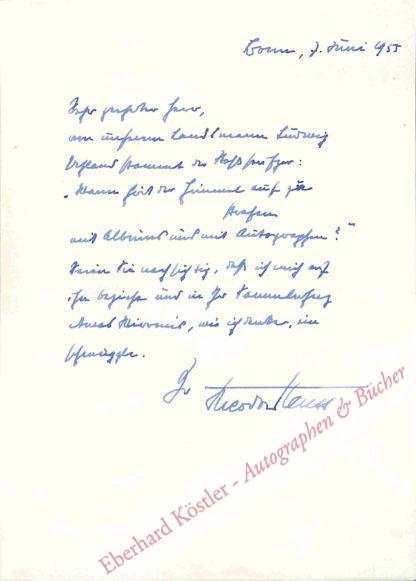 Bonn, 7. Juni 1955
Sehr geehrter Herr,
von unserem Landsmann Ludwig
Uhland stammt der Stoßseufzer:
„Wann hört der Himmel auf zu
strafen
mit Albums und mit Autographen?“
Seien Sie nachsichtig, daß ich mich auf
ihn beziehe und in Ihr
wie ich denke, ein
Ihr Theodor Heuss
Eberhard Köstler - Autographen & Bücher